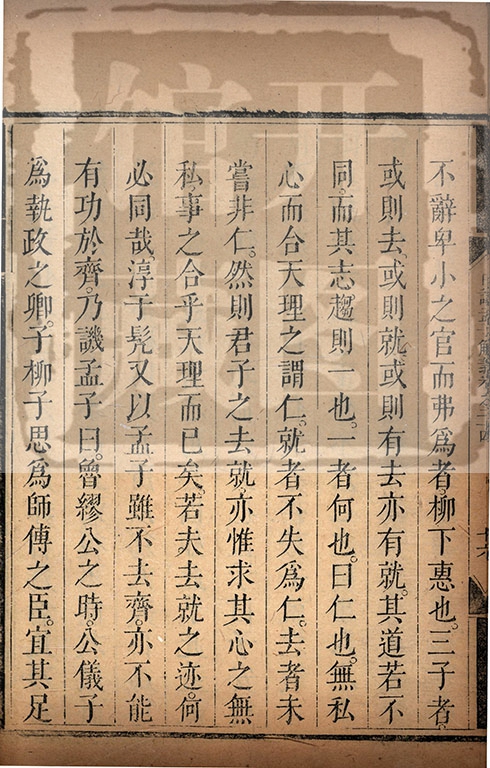 不辭卑小之官而弗為者。柳下惠也。三子者。
或則去。或則就。或則有去亦有就。其道若不
同。而其志趨則一也。一者何也。曰仁也。無私
心而合天理之謂仁。就者不失為仁。去者未
嘗非仁。然則君子之去就亦惟求其心之無
私。事之合乎天理而已矣。若夫去就之迹。何
必同哉。淳于髡又以孟子雖不去齊。亦不能
有功於齊。乃譏孟子曰。魯繆公之時。公儀子
為執政之卿。子柳子思為師傅之臣。宜其足